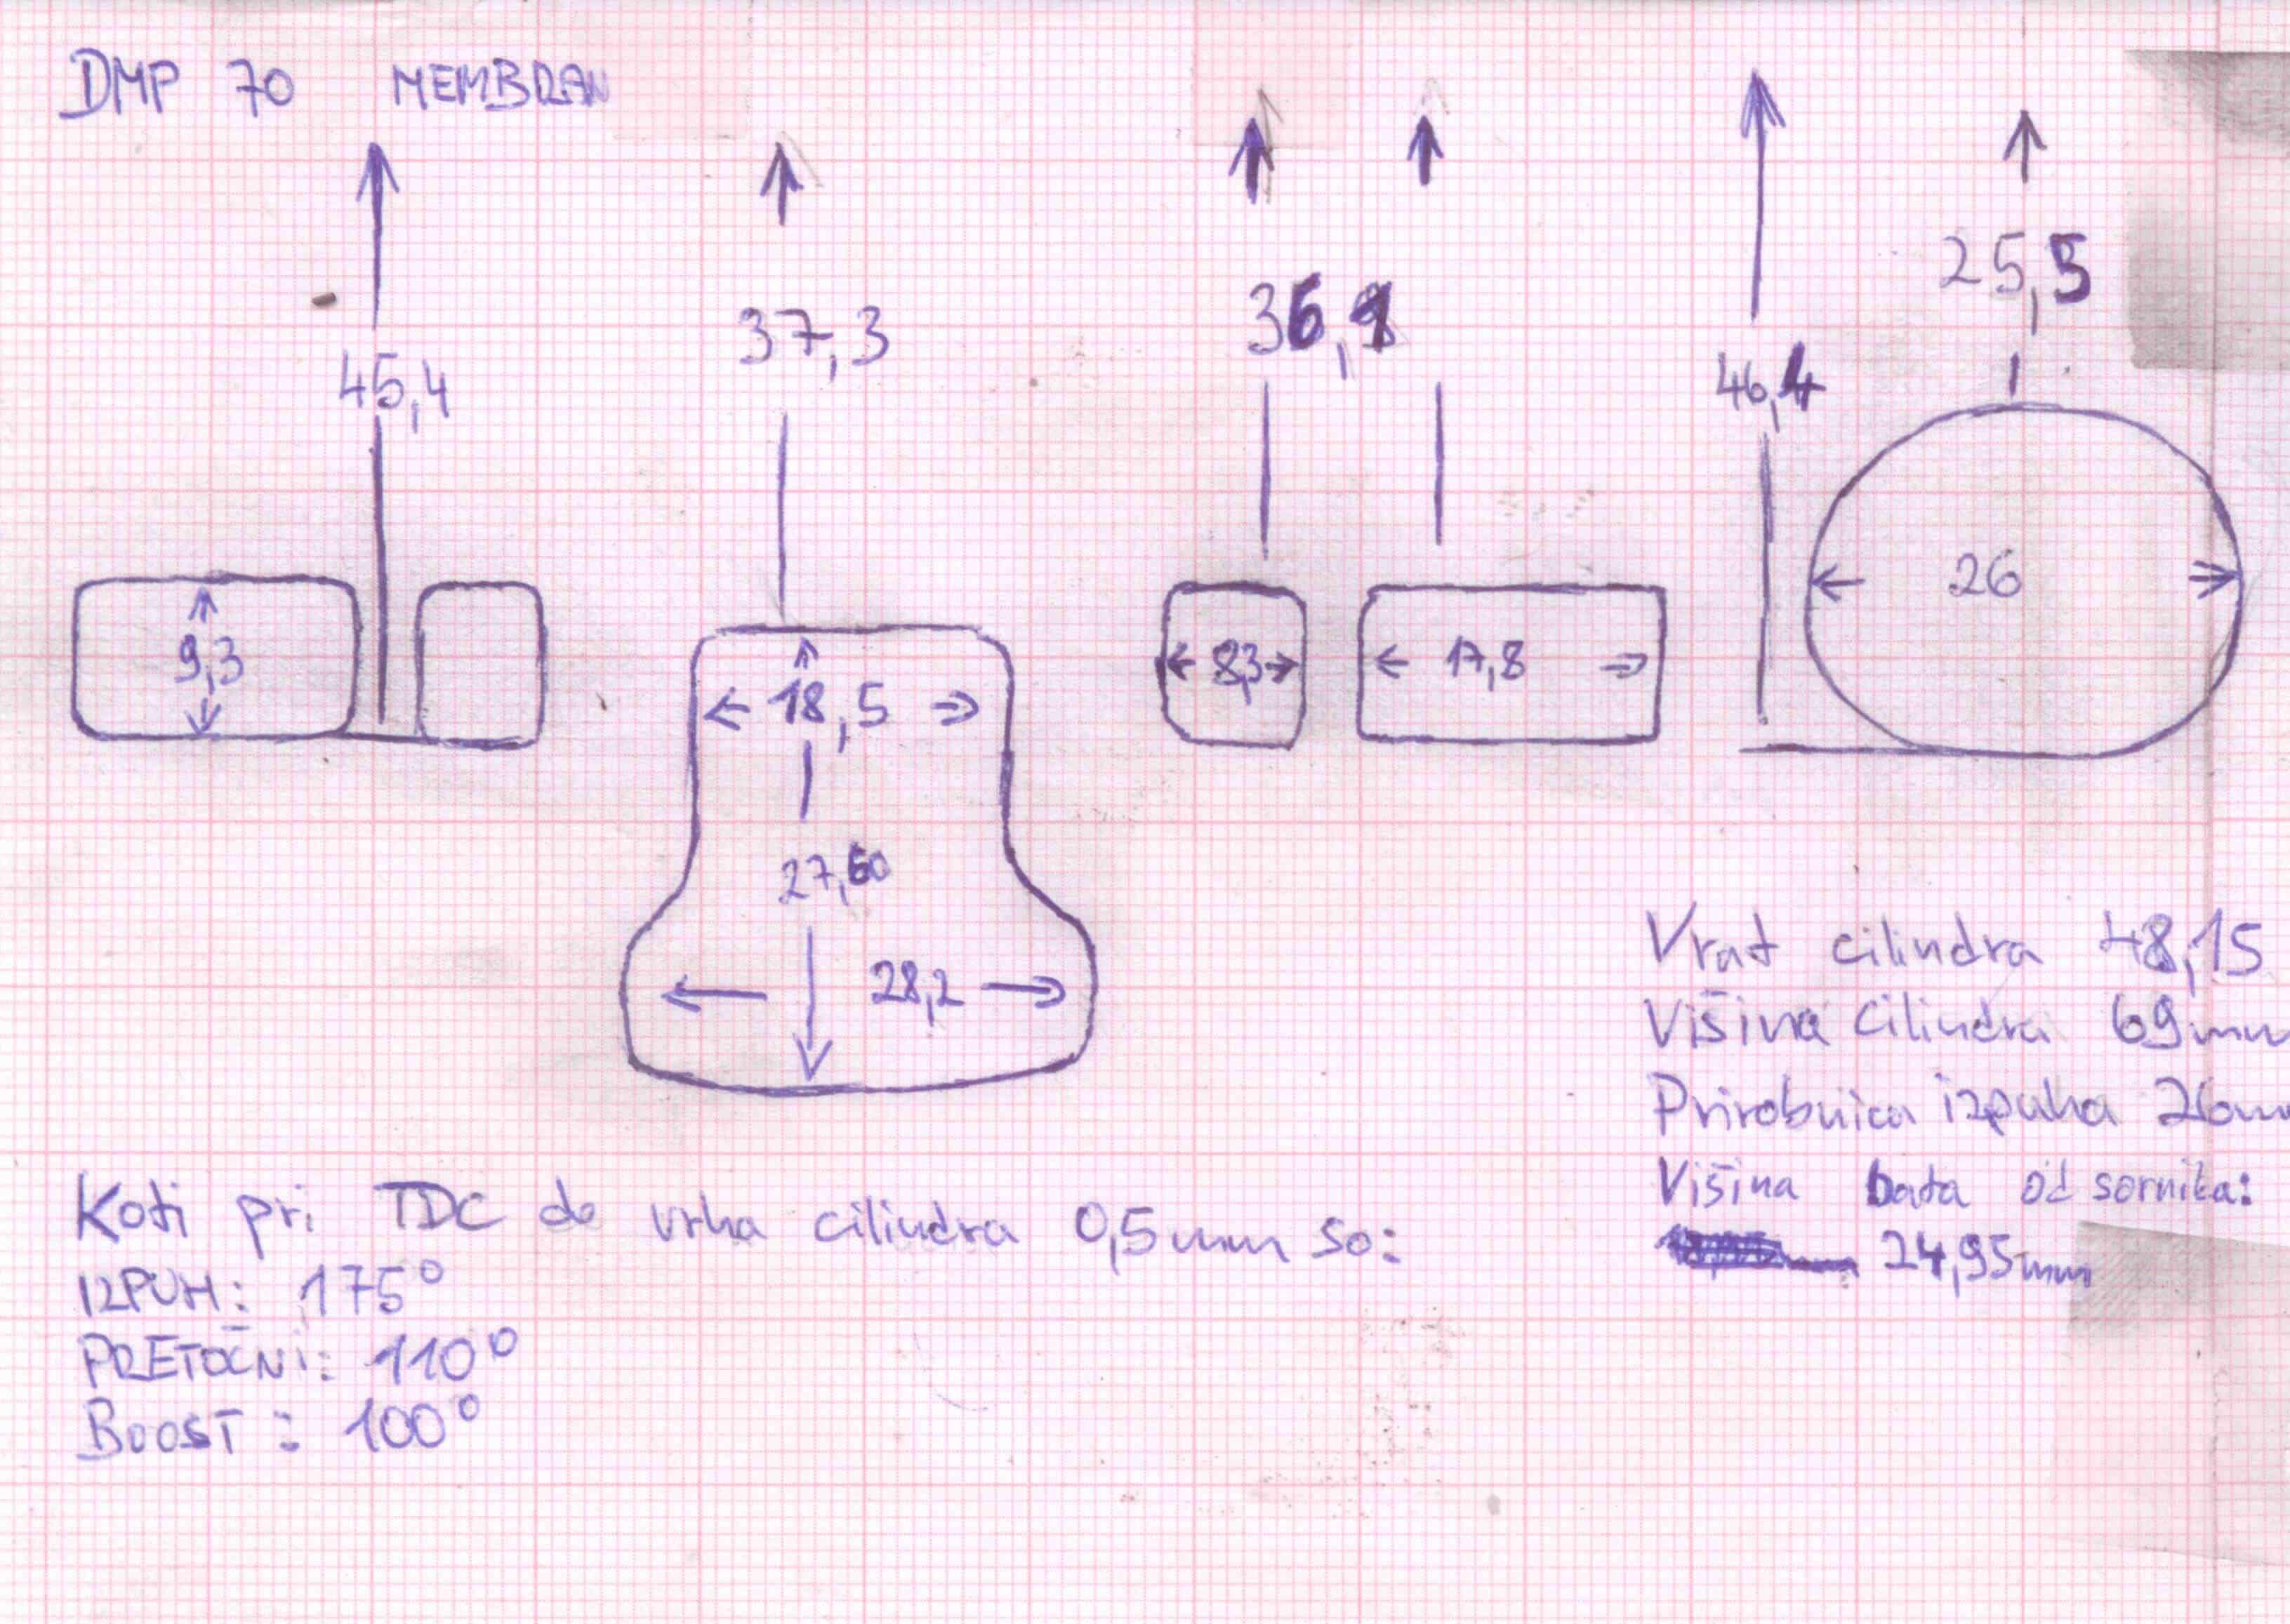 DMP 70 MEMBRAN
45,4
37,3
36,9
46,4
25,5
9,3
18,5
8,3
17,8
26
27,60
28,2
Vrat cilindra 48,15
Višina cilindra 69mm
Prirobnica izpuha 26mm
Višina bata od sornika:
24,95mm
Koti pri TDC do vrha cilindra 0,5mm so:
IZPUH: 175°
PRETOČNI: 110°
BOOST: 100°